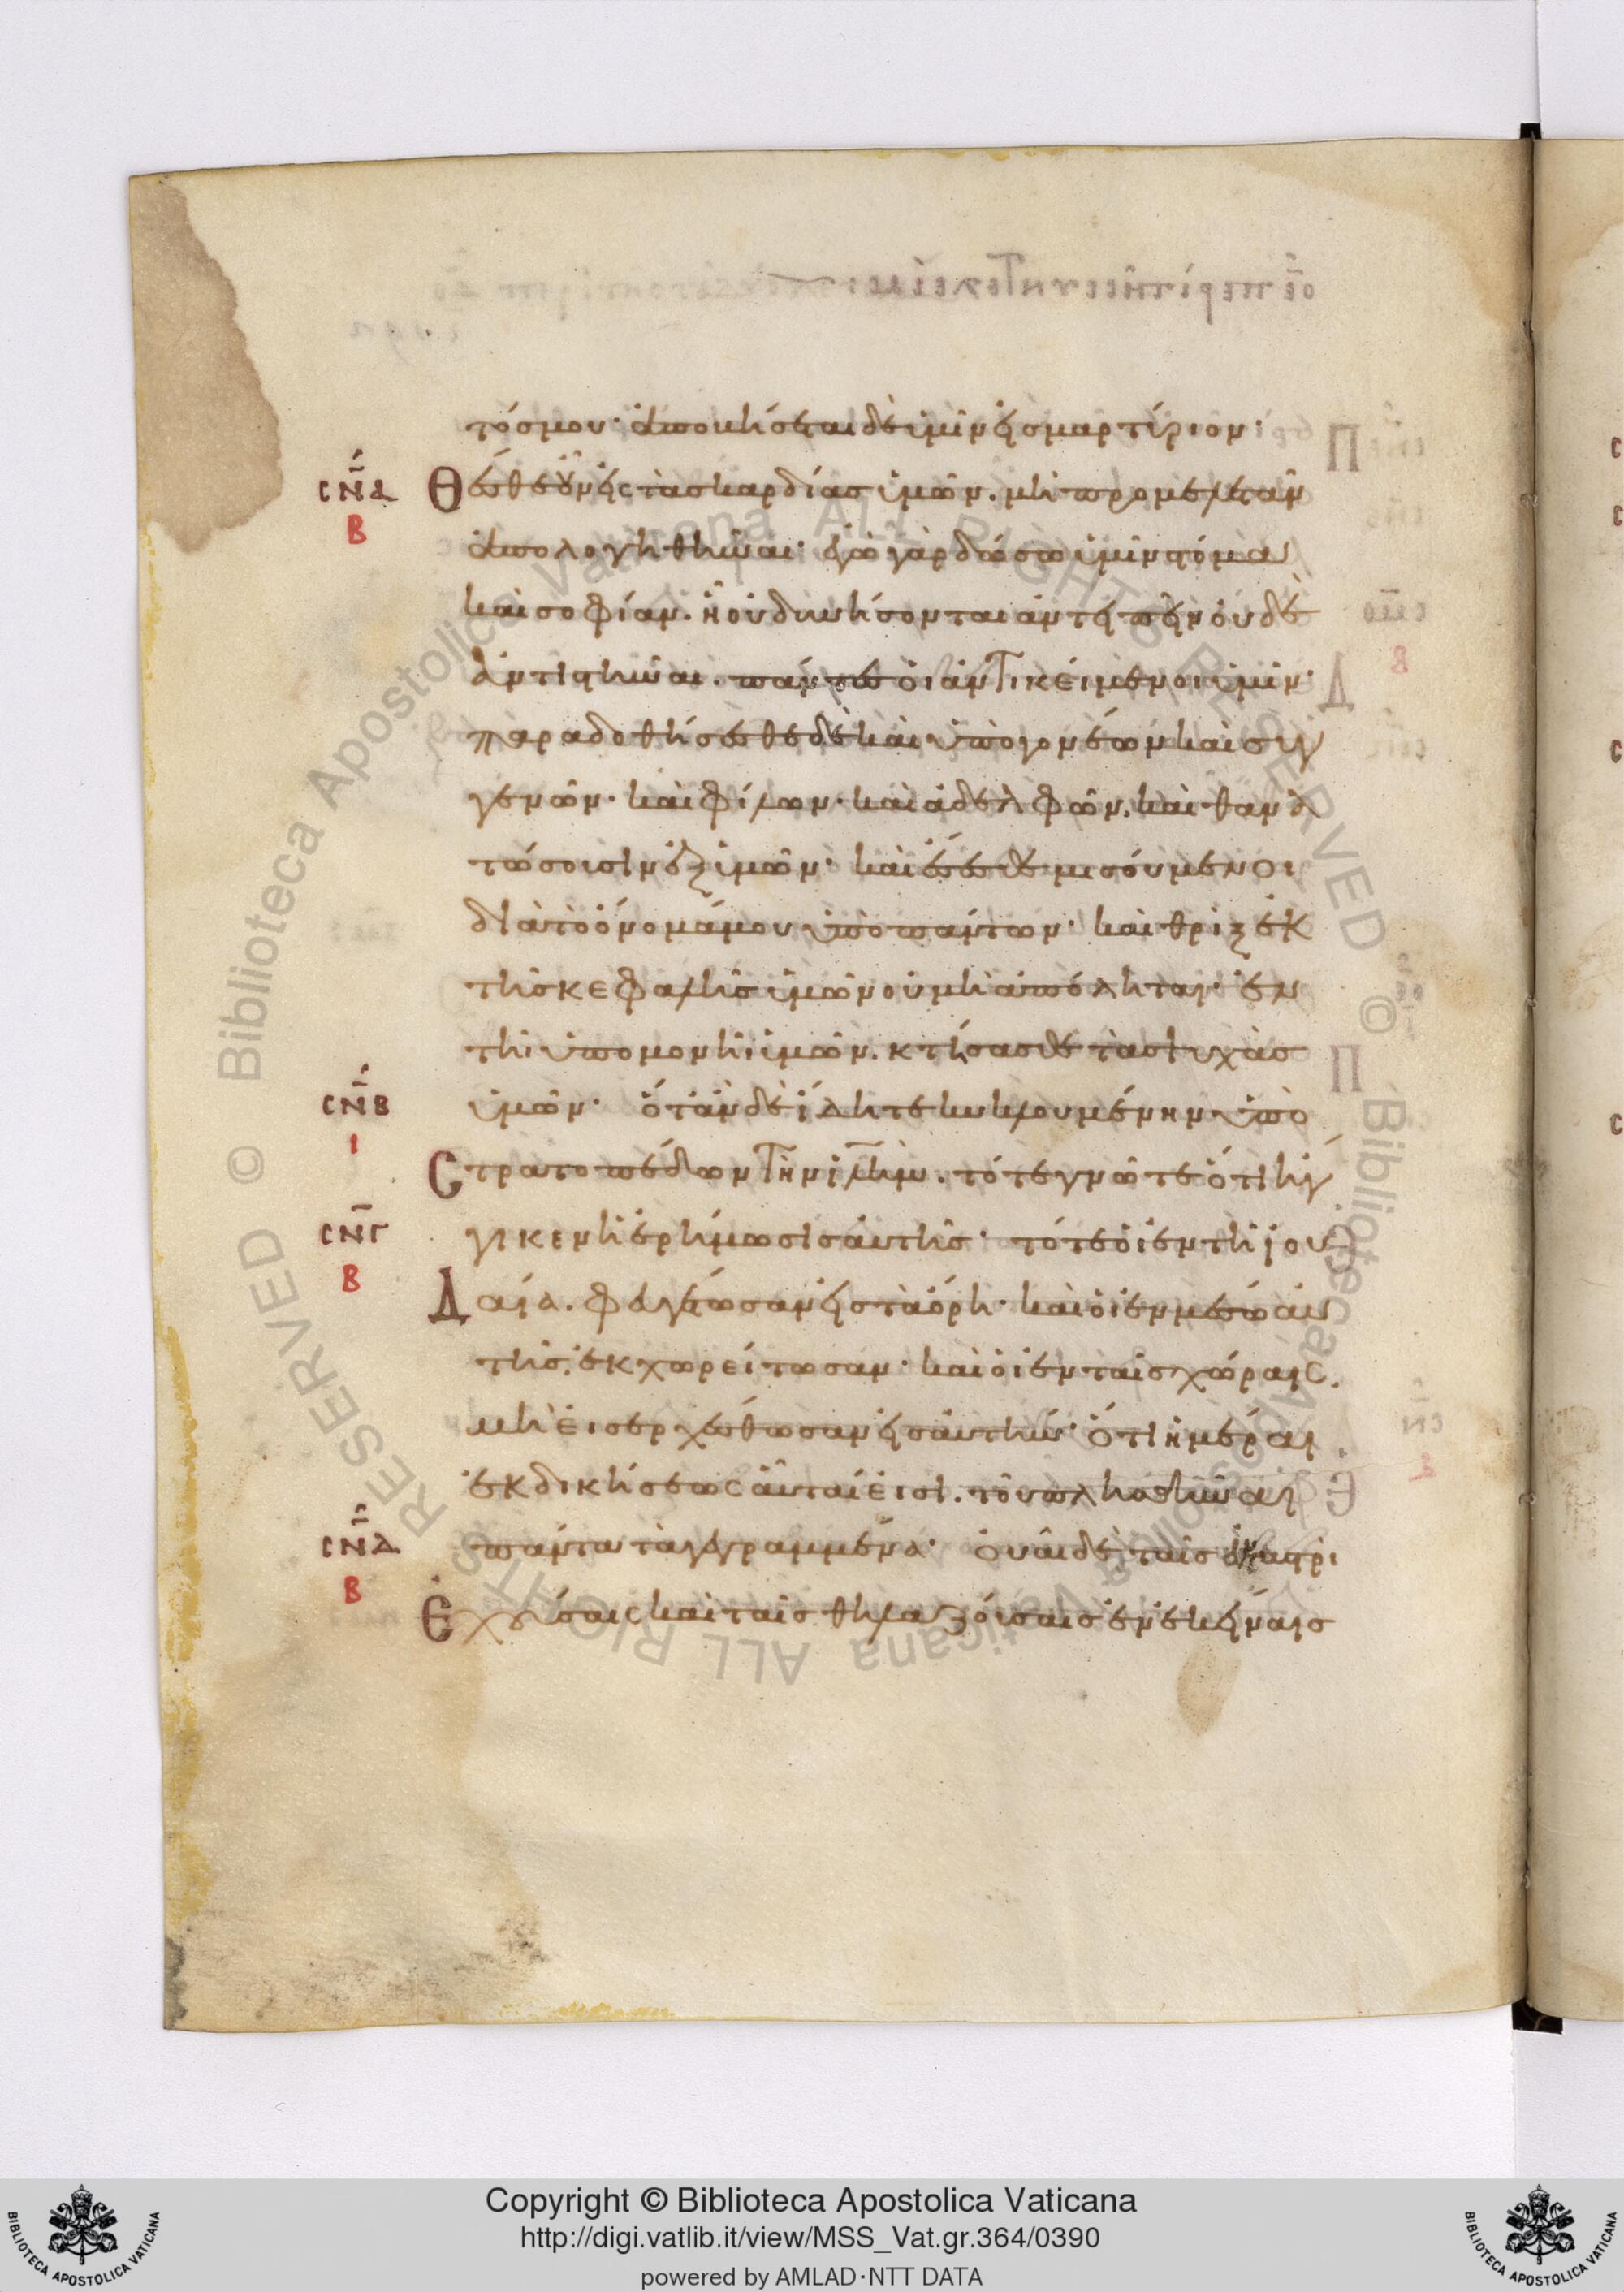 τός μου· ἀποβήσεται δὲ ὑμῖν εἰς μαρτύριον·
ϹΝΑ
Β
Θέσθε οὖν εἰς τὰς καρδίας ὑμῶν. μὴ προμελετᾶν
ἀπολογηθῆναι· ἐγὼ γὰρ δώσω ὑμῖν στόμα
καὶ σοφίαν. ᾗ οὐ δυνήσονται ἀντειπεῖν οὐδὲ
ἀντιστῆναι. πάντες οἱ ἀντικείμενοι ὑμῖν·
παραδοθήσεσθε δὲ καὶ ὑπὸ γονέων καὶ συγ
γενῶν· καὶ φίλων· καὶ ἀδελφῶν. καὶ θανα
τώσουσιν ἐξ ὑμῶν· καὶ ἔσεσθε μισούμενοι
διὰ τὸ ὄνομά μου ὑπὸ πάντων· καὶ θρὶξ ἐκ
τῆς κεφαλῆς ὑμῶν οὐ μὴ ἀπόληται· ἐν
τῆι ὑπομονῆι ὑμῶν. κτήσασθε τὰς ψυχὰς
ϹΝΒ
Ι
ὑμῶν· ὅταν δὲ ἴδητε κυκλουμένην ὑπὸ
Στρατοπέδων τὴν ἰλημ. τότε γνῶτε ὅτι ἤγ
ϹΝΓ
Β
γικεν ἡ ἐρήμωσις αὐτῆς· τότε οἱ ἐν τῆι ἰου
Δαία. φευγέτωσαν εἰς τὰ ὄρη· καὶ οἱ ἐν μέσω αὐ
τῆς. ἐκχωρείτωσαν· καὶ οἱ ἐν ταῖς χώραις.
μὴ εἰσερχέσθωσαν εἰς αὐτήν· ὅτι ἡμέραι
ἐκδικήσεως αὗταί εἰσι. τοῦ πλησθῆναι
ϹΝΔ
Β
πάντα τὰ γεγραμμένα· οὐαὶ δὲ ταῖς ἐν γαστρὶ
Ἐχούσαις καὶ ταῖς θηλαζούσαις ἐν ἐκείναις
Copyright © Biblioteca Apostolica Vaticana
http://digi.vatlib.it/view/MSS_Vat.gr.364/0390
powered by AMLAD·NTT DATA